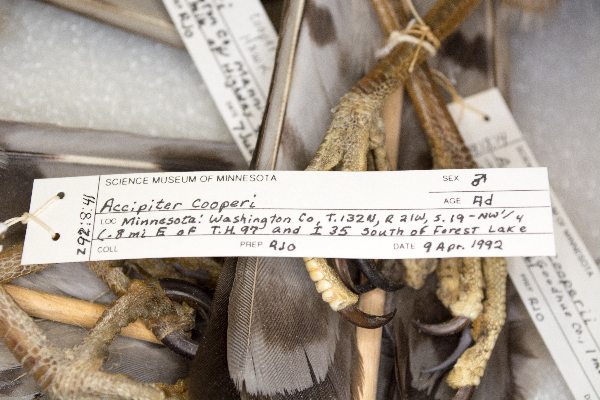 SCIENCE MUSEUM OF MINNESOTA
SEX ♂
Accipiter Cooperi
AGE Ad
LOC Minnesota: Washington Co, T.132N, R 21W, S.19-NW 1/4
(.8 mi E of T.H.97 and I 35 south of Forest Lake
COLL
PREP RJO
DATE 9 Apr. 1992
Z92:8:41
PREP RJO
cooperii